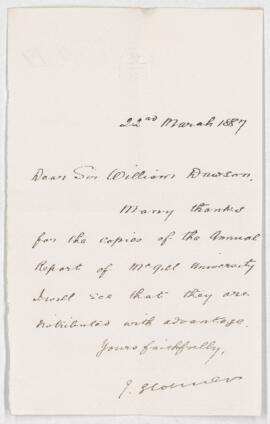 22nd March 1887
Dear Sir William Dawson,
Many thanks
for the copies of the Annual
Report of McGill University
I will see that they are
distributed with advantage.
Yours faithfully,